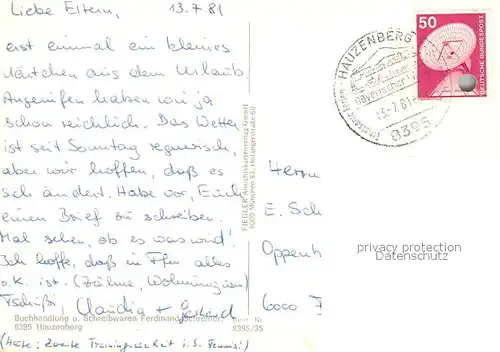 Liebe Eltern, 13.7.81
erst einmal ein kleines
Kärtchen aus dem Urlaub.
Angerufen haben wir ja
schon reichlich. Das Wetter
ist seit Sonntag regnerisch,
aber wir hoffen, daß es
sich ändert. Habe vor, Euch
einen Brief zu schreiben.
Mal sehen, ob es was wird!
Ich hoffe, daß in Ffm alles
o.k. ist. (Zähne, Wohnung
Tschüß, Claudia +
(Heute: Zweite Trainingseinheit i.S. Tennis!)
Buchhandlung u. Schreibwaren Ferdinand Schreiner
8395 Hauzenberg
Best. Nr.
8395/35
FIEDLER Ansichtskartenverlag GmbH
8000 München 83,
HAUZENBERG
Bayerischer
13.-7.81
8395
50
DEUTSCHE BUNDESPOST
Herrn
E. Sch
Oppenh
6000 F
privacy protection
Datenschutz